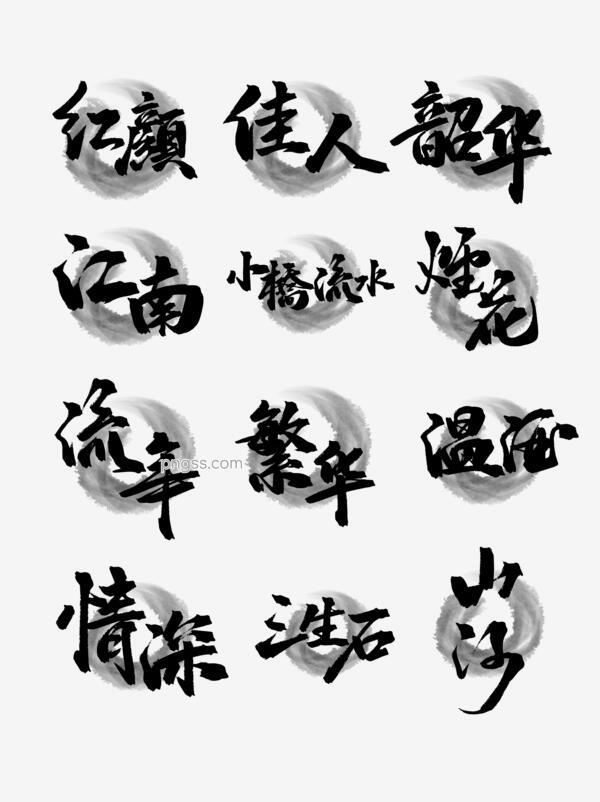 红颜
佳人
韶华
江南
小橋流水
煙花
流年
繁华
温酒
情深
三生石
山河
pngss.com